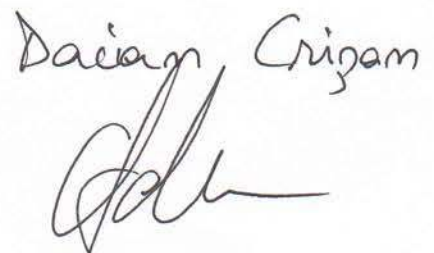 Dacian Crișan